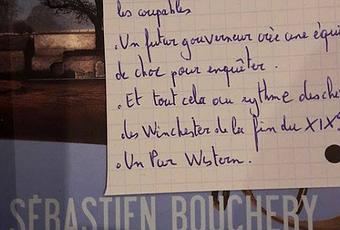 les coupables
. Un futur gouverneur crée une équi
de choc pour enquêter.
. Et tout cela au rythme des che
des Winchester de la fin du XIXe
. Un Pur Western.
SÉBASTIEN BOUCHERY